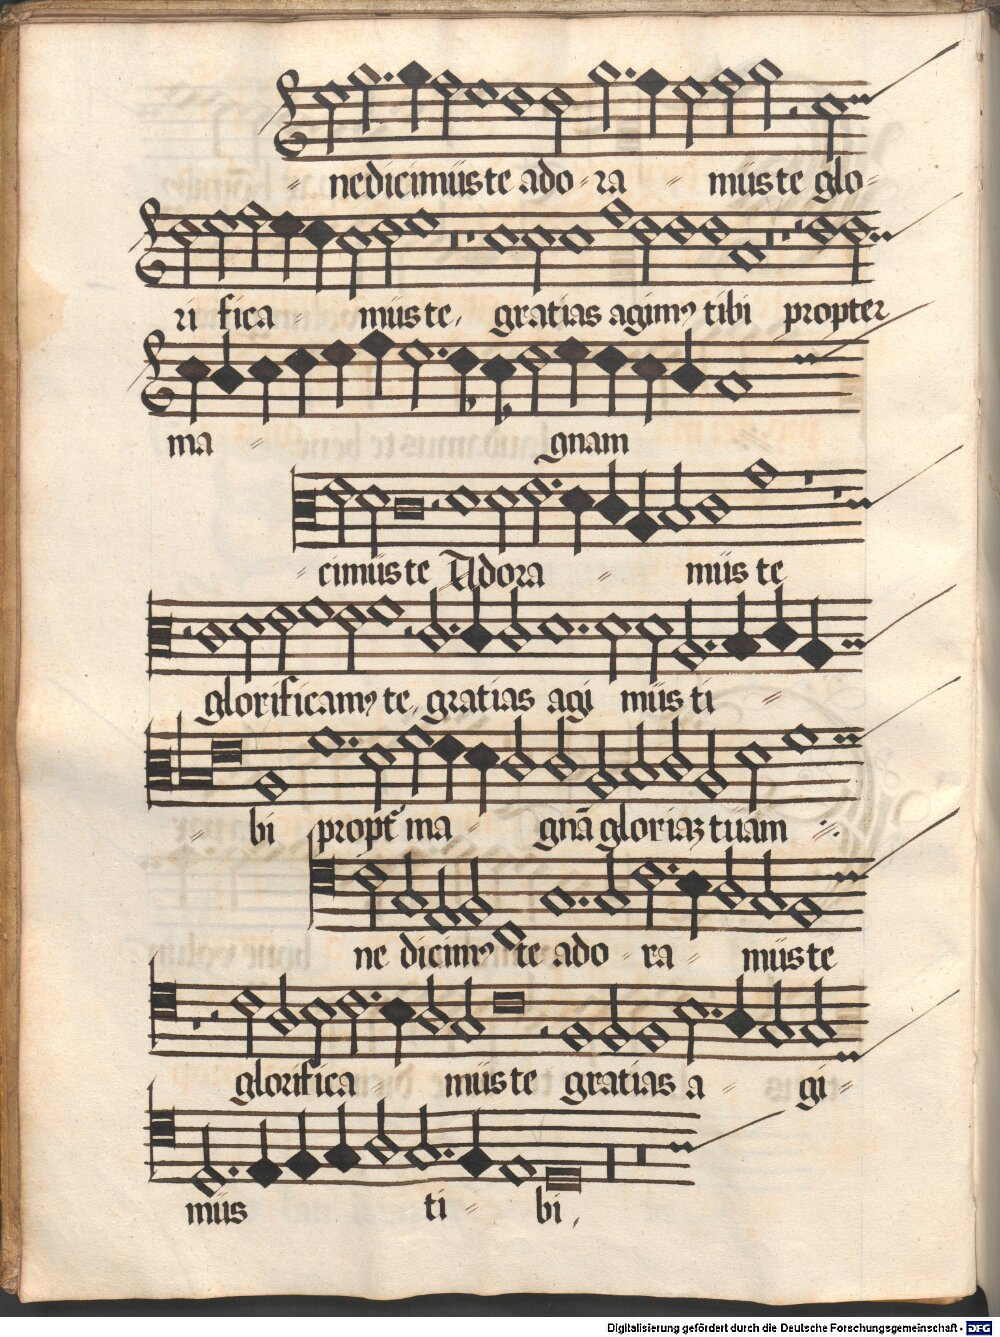 nedicimuste ado - ra müste glo-
rifica müste, gratias agimꝰ tibi propter
ma gnam
cimüste Adora müste
glorificamꝰ te, gratias agi müs ti
bi propt ma gnā gloriaꝫ tuam
ne dicimꝰ te ado - ra müste
glorifica müste gratias a gi-
müs ti bi,
Digitalisierung gefördert durch die Deutsche Forschungsgemeinschaft - DFG